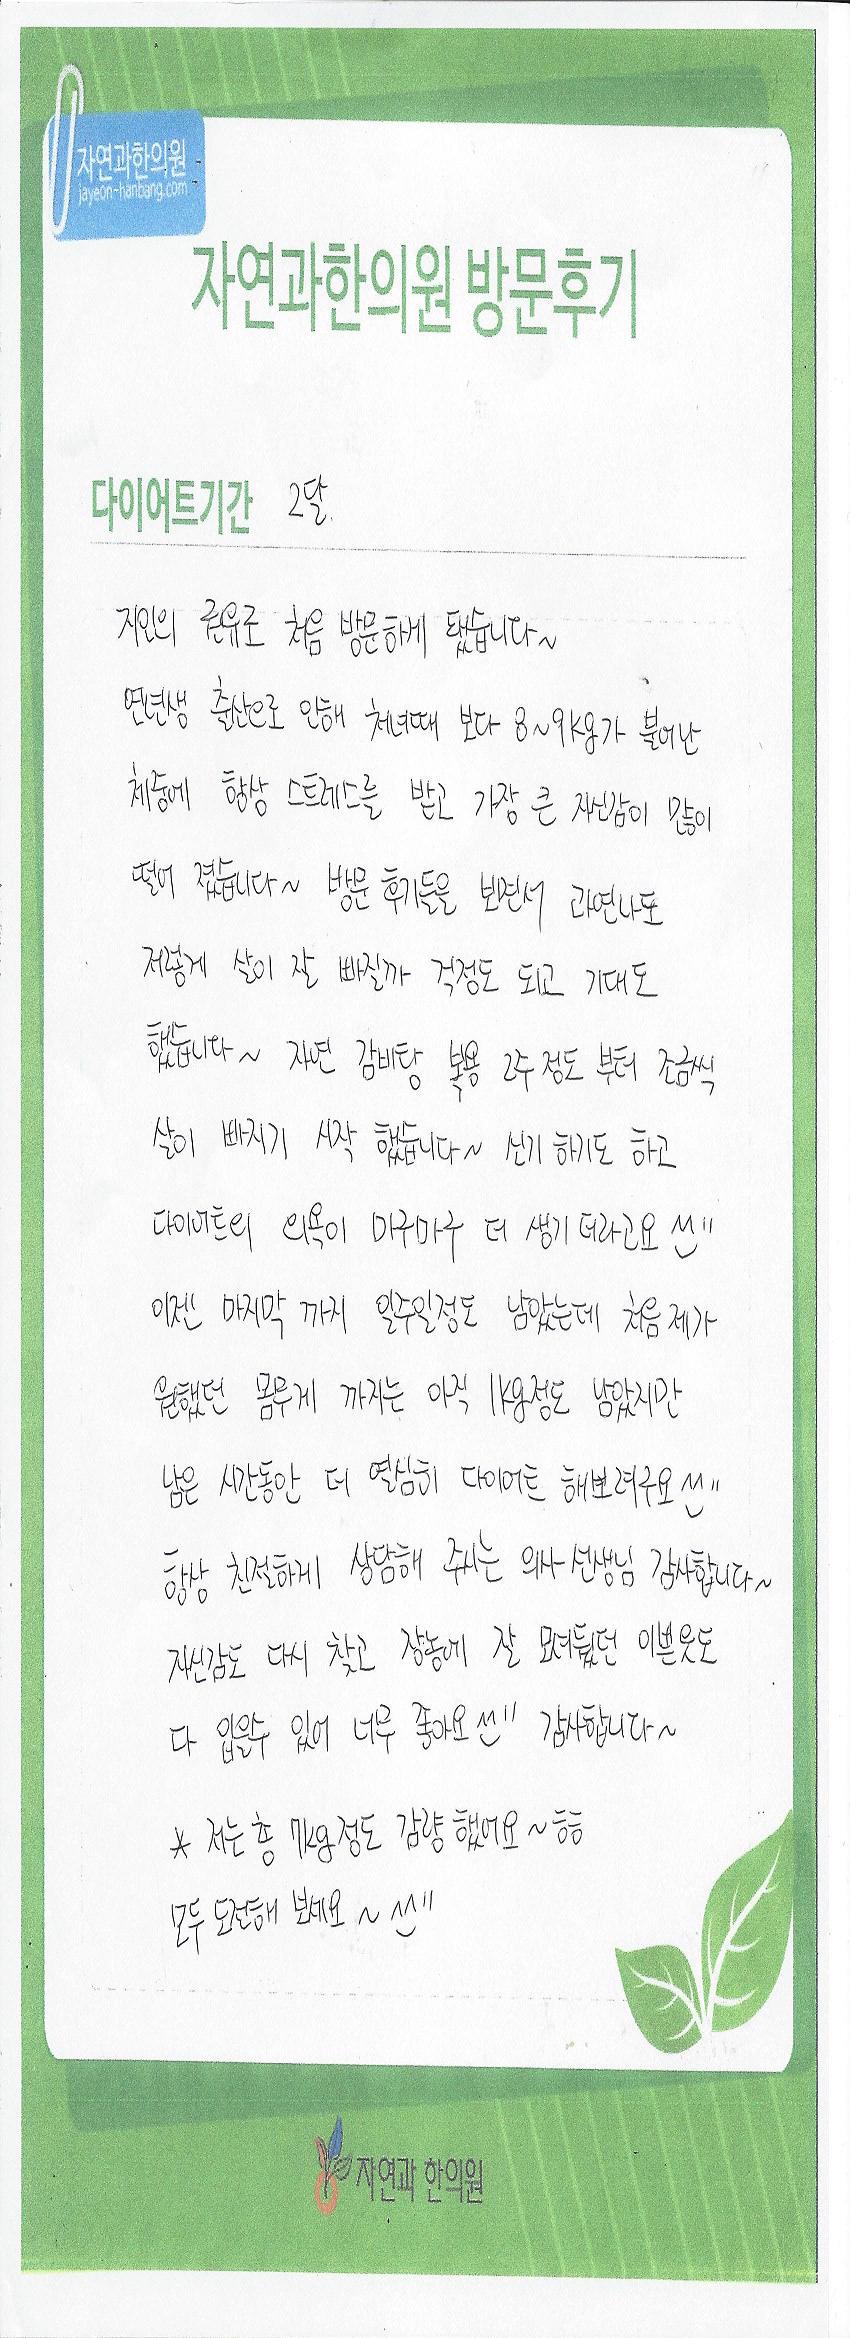 자연과한의원
jayeon-hanbang.com
자연과한의원 방문후기
다이어트기간 2달.
지인의 권유로 처음 방문하게 됐습니다~
연년생 출산으로 인해 처녀때 보다 8~9kg가 불어난
체중에 항상 스트레스를 받고 가장 큰 자신감이 많이
떨어 졌습니다~ 방문 후기들을 보면서 과연나도
저렇게 살이 잘 빠질까 걱정도 되고 기대도
했습니다~ 자연 감비탕 복용 2주정도 부터 조금씩
살이 빠지기 시작 했습니다~ 신기 하기도 하고
다이어트의 의욕이 마구마구 더 생기더라고요 ^^"
이젠 마지막 까지 일주일정도 남았는데 처음 제가
원했던 몸무게 까지는 아직 1kg정도 남았지만
남은 시간동안 더 열심히 다이어트 해보려구요 ^^"
항상 친절하게 상담해 주시는 의사선생님 감사합니다~
자신감도 다시 찾고 장농에 잘 모셔뒀던 이쁜옷도
다 입을수 있어 너무 좋아요 ^^" 감사합니다~
* 저는 총 7kg정도 감량 했어요~ㅎㅎ
모두 도전해 보세요~ ^^"
자연과 한의원